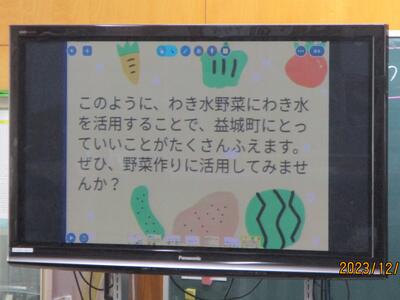 このように、わき水野菜にわき水
を活用することで、益城町にとっ
ていいことがたくさんふえます。
ぜひ、野菜作りに活用してみませ
んか？
Panasonic
2023/12/